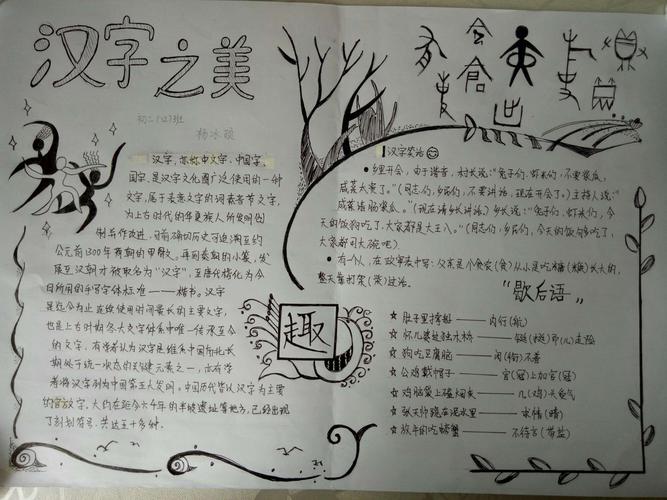 汉字之美
初二(2)班
杨冰
汉字,亦称中文字、中国字、
国字,是汉字文化圈广泛使用的一种
文字,属于表意文字的词素音节文字,
为上古时代的华夏族人所发明创
制并作改进,目前确切历史可追溯至约
公元前1300年商朝的甲骨文。再到秦朝的小篆,发
展至汉朝才被取名为“汉字”,至唐代楷化为今
日所用的手写字体标准——楷书。汉字
是迄今为止连续使用时间最长的主要文字,
也是上古时期各大文字体系中唯一传承至今
的文字,有学者认为汉字是维系中国南北长
期处于统一状态的关键元素之一,亦有学
者将汉字列为中国第五大发明。中国历代皆以汉字为主要
的官方文字,大约在距今六千年的半坡遗址等地方,已经出现
了刻划符号,共达五十多种。
趣
汉字笑话
乡里开会,由于谐音,村长说:“兔子们,虾米们,不要酱瓜,
咸菜太贵了。”(同志们,乡亲们,不要讲话,现在开会了。)主持人说:“
咸菜请肠酱瓜。”(现在请乡长讲话)乡长说:“兔子们,虾米们,今
天的饭狗吃了,大家都是大王八。”(同志们,乡亲们,今天的饭够吃了,
大家都可大碗吧)
有一人,在政审表中写:父亲是个食客(贪)从小是吃糖(糠)长大的,
整天靠打菜(柴)过活。
“歇后语”
肚子里撑船——内行(航)
怀儿婆娘过独木桥——铤(挺)而(儿)走险
狗吃豆腐脑——闲(衔)不着
公鸡戴帽子——官(冠)上加官(冠)
鸡脑袋上磕烟灰——几(鸡)大点气
张天师跪在泥水里——求情(晴)
放牛的吃螃蟹——不待言(带盐)